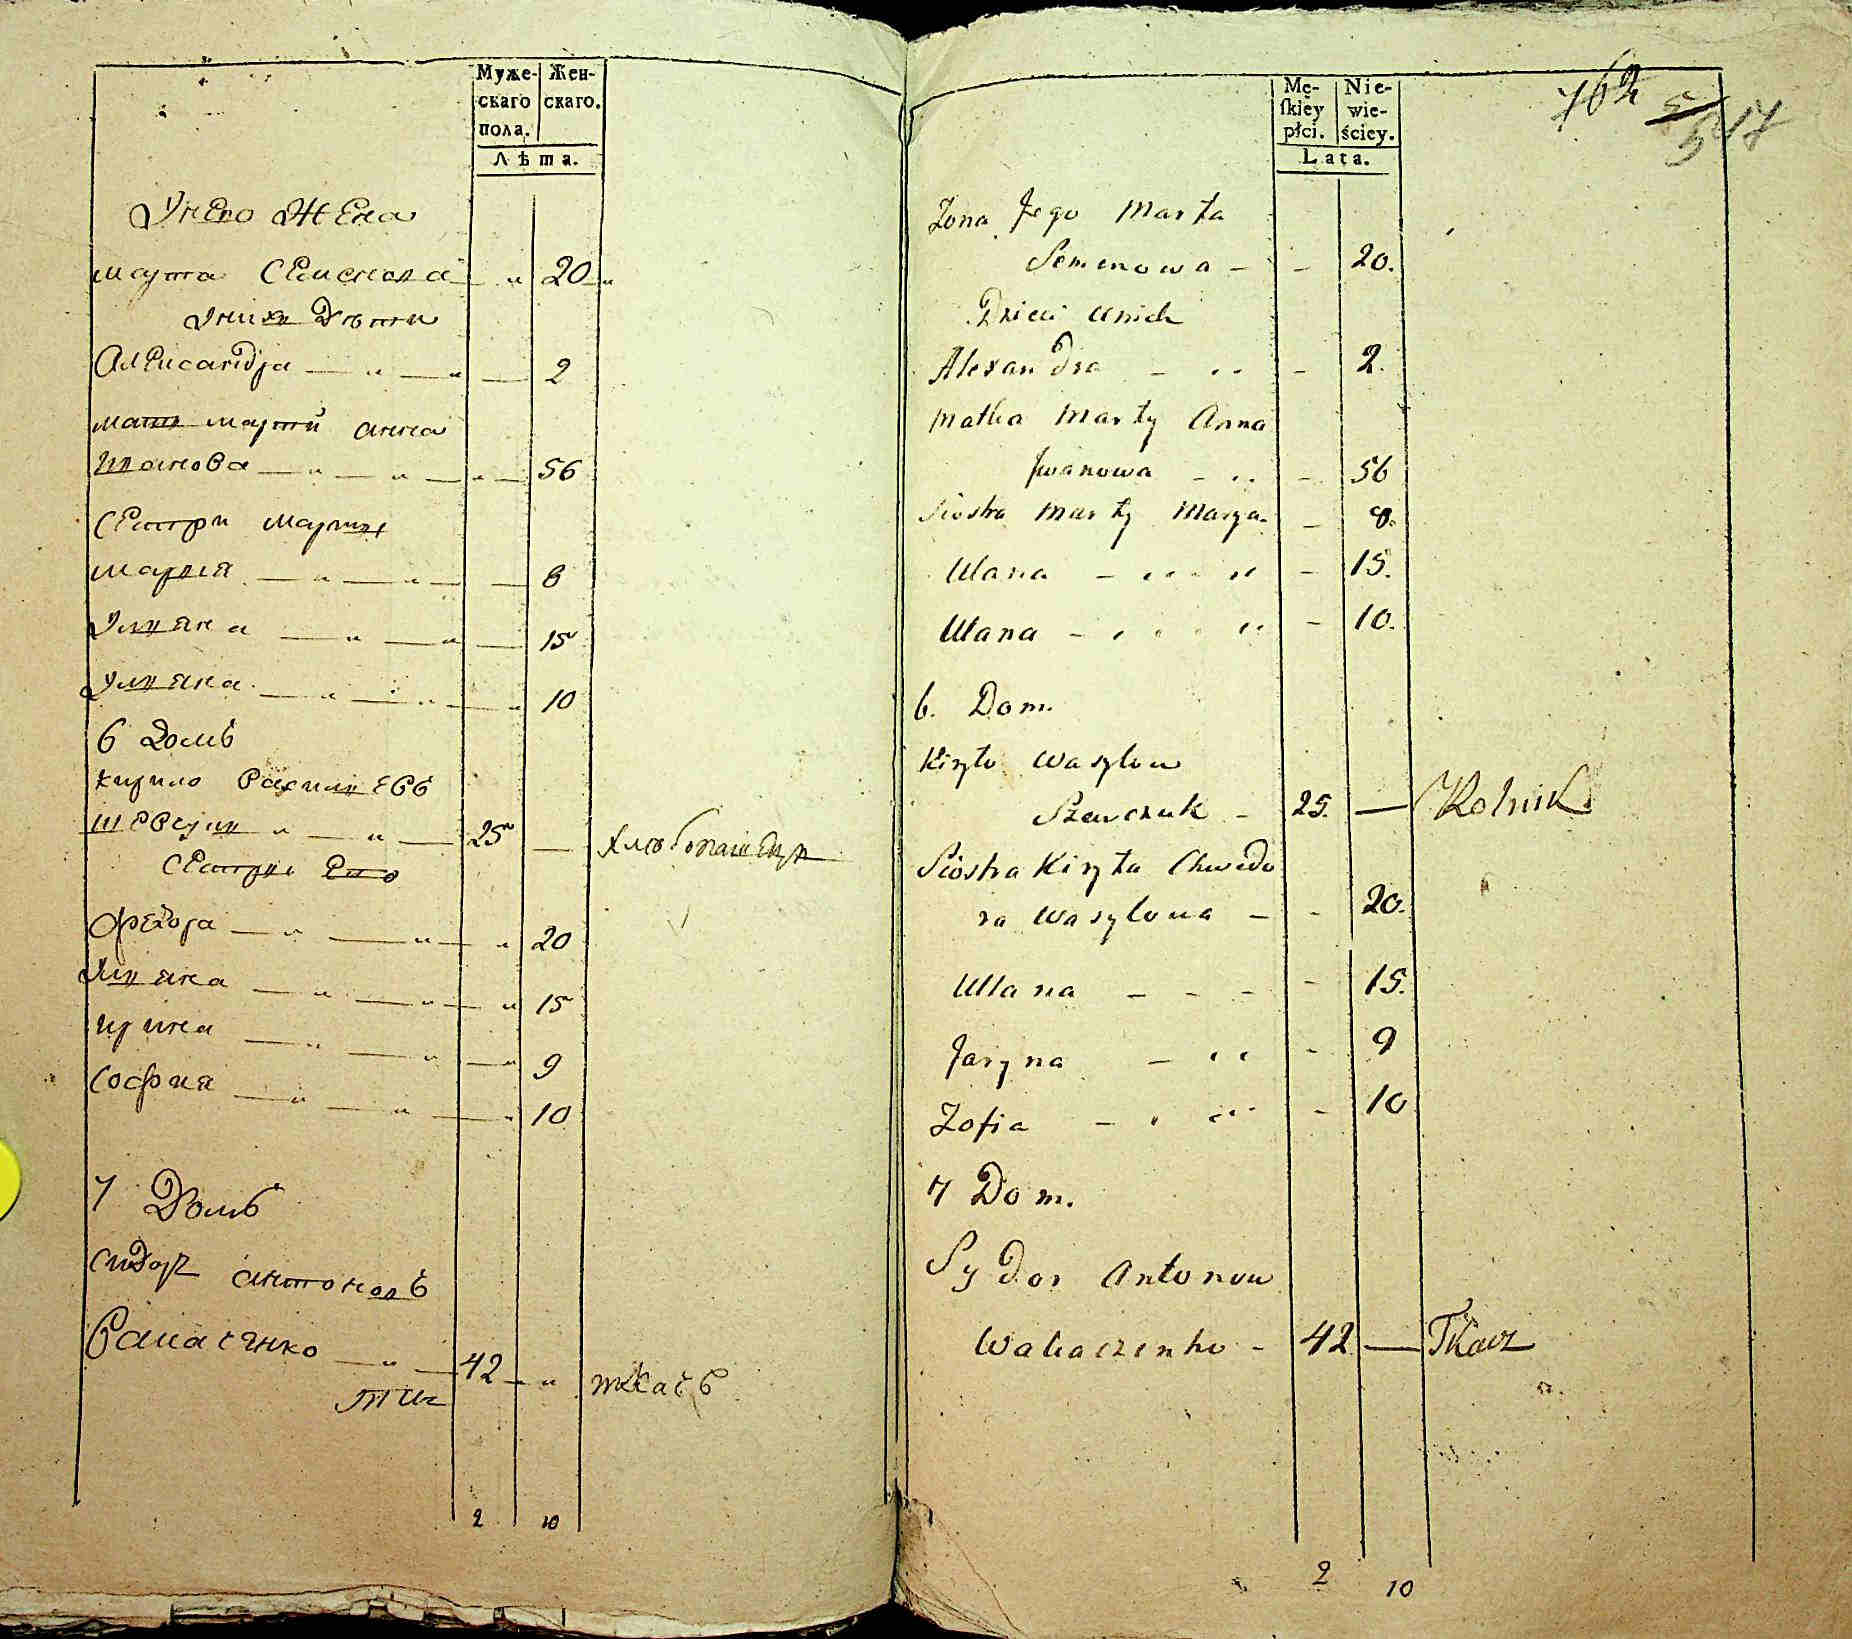 Муже-
скаго
пола.
Жен-
скаго.
Лѣта.
Унего Жена
марта Семенова 20
Уних Дѣти
Александра 2
мать марти анна
Иванова 56
Сестри марти
мария 8
Улияна 15
Улияна 10
6 Домъ
кирило василиевъ
шевчук 25 хлебопашец
Сестри Его
Федора 20
Улияна 15
ирина 9
София 10
7 Домъ
сидор антоновъ
42 ткачъ
2 10
Mę-
ſkiey
płci.
Nie-
wie-
ściey.
Lata.
762
517
Zona Jego Marta
Semenowa 20.
Dzieci Unich
Alexandra 2.
Matka Marty Anna
Jwanowa 56
Siostra Marty Marya 8.
Ulana 15.
Ulana 10.
6. Dom.
Kiryło Wasylow
Szewczuk 25. Rolnik
Siostra Kiryła Chwedo
ra Wasylowa 20.
Ulana 15.
Jaryna 9
Zofia 10
7 Dom.
Sydor Antonow
42 Tkacz
2 10